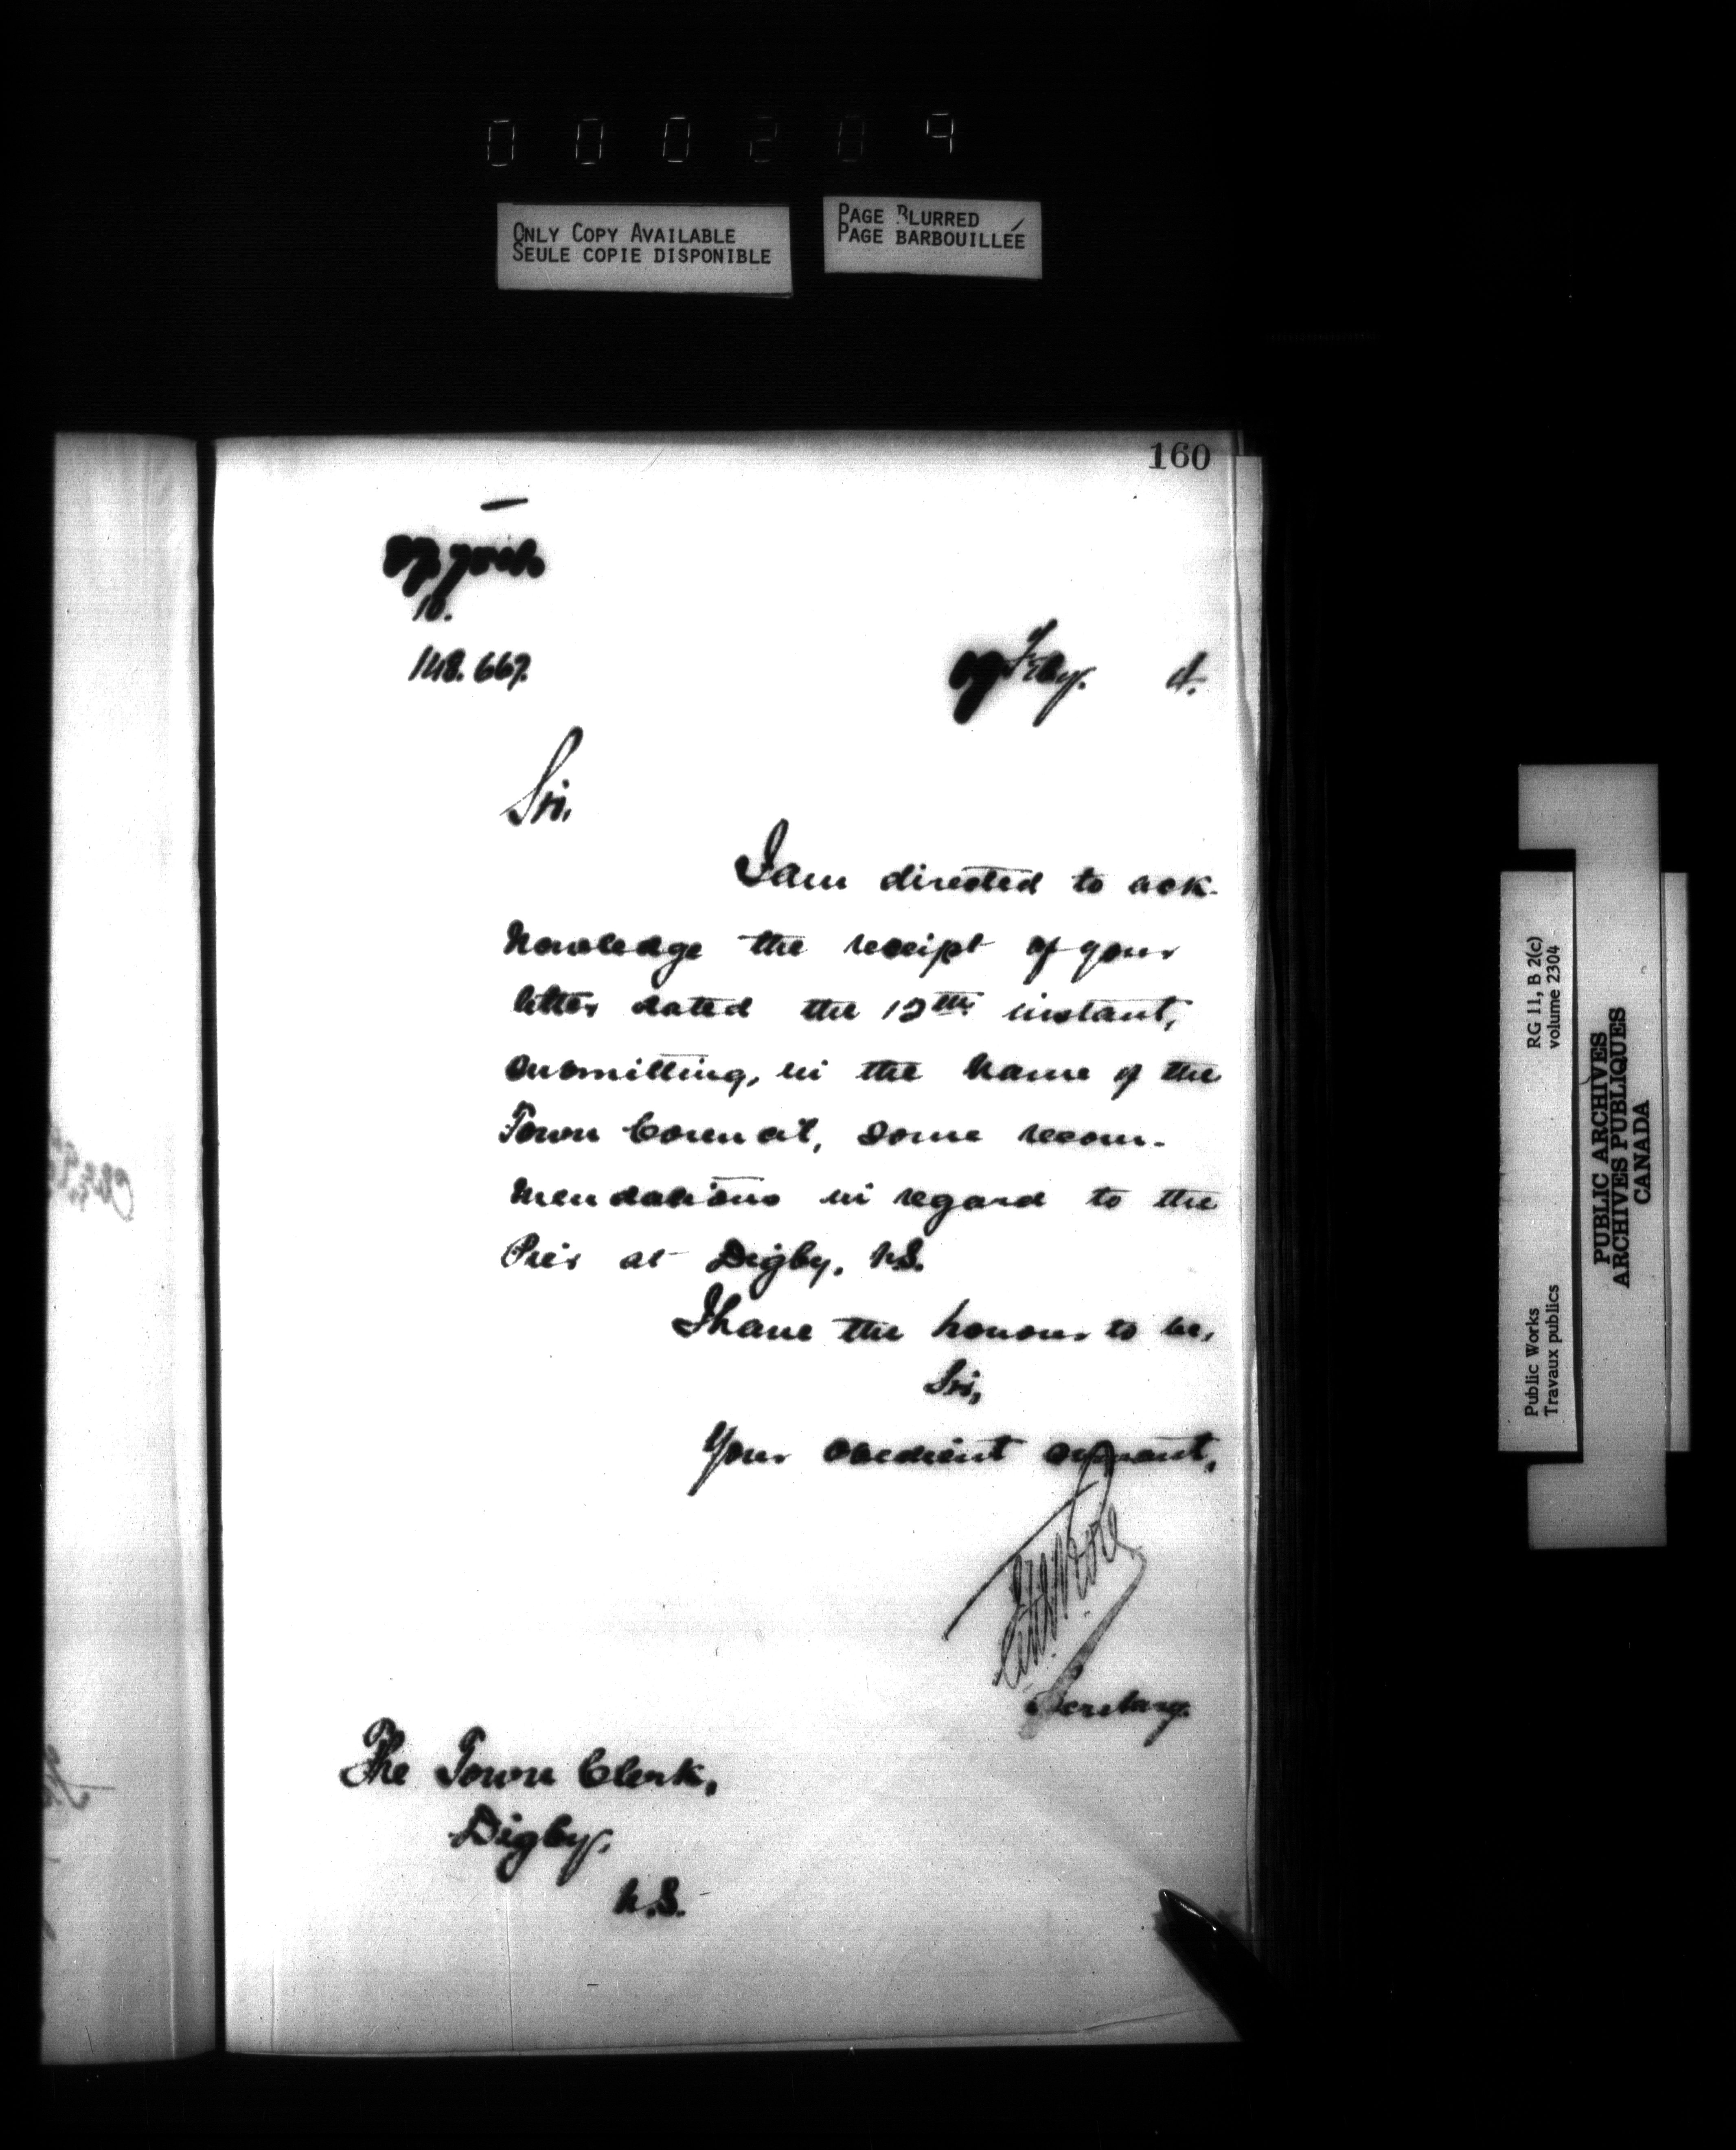 000209
ONLY COPY AVAILABLE
SEULE COPIE DISPONIBLE
PAGE BLURRED
PAGE BARBOUILLÉE
160
10.
148.667.
Feby. 4.
Sir,
I am directed to ack-
nowledge the receipt of your
letter dated the 12th instant,
submitting, in the name of the
Town Council, some recom-
mendations in regard to the
Pier at Digby, N.S.
I have the honour to be,
Sir,
Your obedient servant,
Secretary.
The Town Clerk,
Digby,
N.S.
RG 11, B 2(c)
volume 2304
Public Works
Travaux publics
PUBLIC ARCHIVES
ARCHIVES PUBLIQUES
CANADA